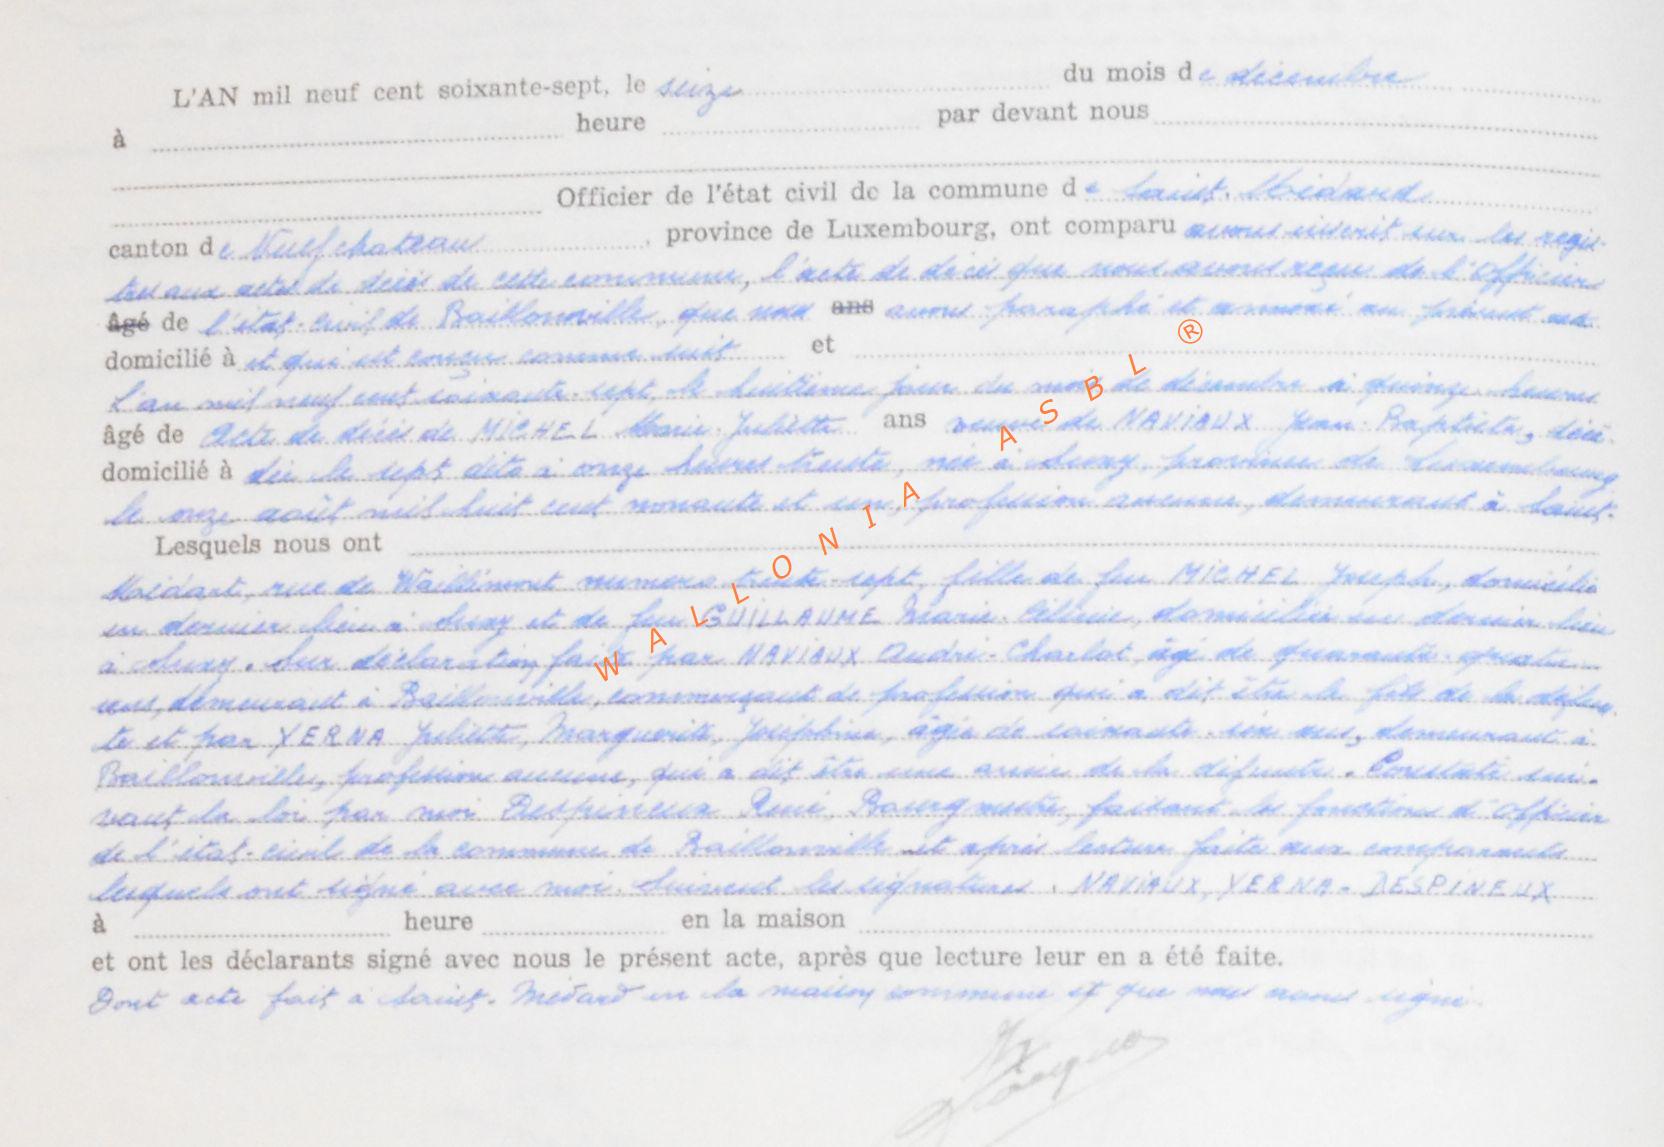 L'AN mil neuf cent soixante-sept, le seize du mois de décembre
à heure par devant nous
Officier de l'état civil de la commune de Saint-Médard
canton de Neufchateau, province de Luxembourg, ont comparu avons inscrit sur les regis-
tres aux actes de décès de cette commune, l'acte de décès que nous avons reçu de l'Officier
âgé de l'état-civil de Baillonville, que nous ans avons paraphé et annexé au présent
domicilié à et qui est conçu comme suit et
L'an mil neuf cent soixante-sept, le huitième jour du mois de décembre à quinze heures
âgé de Acte de décès de MICHEL Marie-Juliette ans veuve de NAVIAUX Jean-Baptiste, décé-
domicilié à dée le sept dito à onze heures trente, née à Suxy, province de Luxembourg
le onze août mil huit cent nonante et un, profession aucune, demeurant à Saint-
Lesquels nous ont
Médart, rue de Waillimont numéro trente-sept, fille de feu MICHEL Joseph, domicilié
en dernier lieu à Suxy et de feu GUILLAUME Marie-Céline, domiciliée en dernier lieu
à Suxy. Sur déclaration faite par NAVIAUX André-Charlot, âgé de quarante-quatre
ans, demeurant à Baillonville, commerçant de profession qui a dit être le fils de la défun-
te et par YERNA Juliette, Marguerite, Joséphine, âgée de soixante-six ans, demeurant à
Baillonville, profession aucune, qui a dit être une amie de la défunte. Constaté sui-
vant la loi par moi Despineux René, Bourgmestre, faisant les fonctions d'Officier
de l'état-civil de la commune de Baillonville et après lecture faite aux comparants
lesquels ont signé avec moi. Suivent les signatures. NAVIAUX, YERNA-DESPINEUX
à heure en la maison
et ont les déclarants signé avec nous le présent acte, après que lecture leur en a été faite.
Dont acte fait à Saint-Médard en la maison commune et que nous avons signé.
WALLONIA ASBL ®